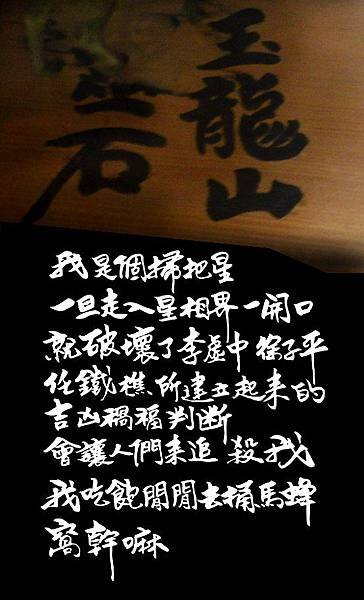 玉龍山
石
我是個掃把星
一旦走入星相界一開口
就破壞了李虛中徐子平
任鐵樵所建立起來的
吉凶禍福判断
會讓人們來追殺我
我吃飽閒閒去捅馬蜂
窩幹嘛